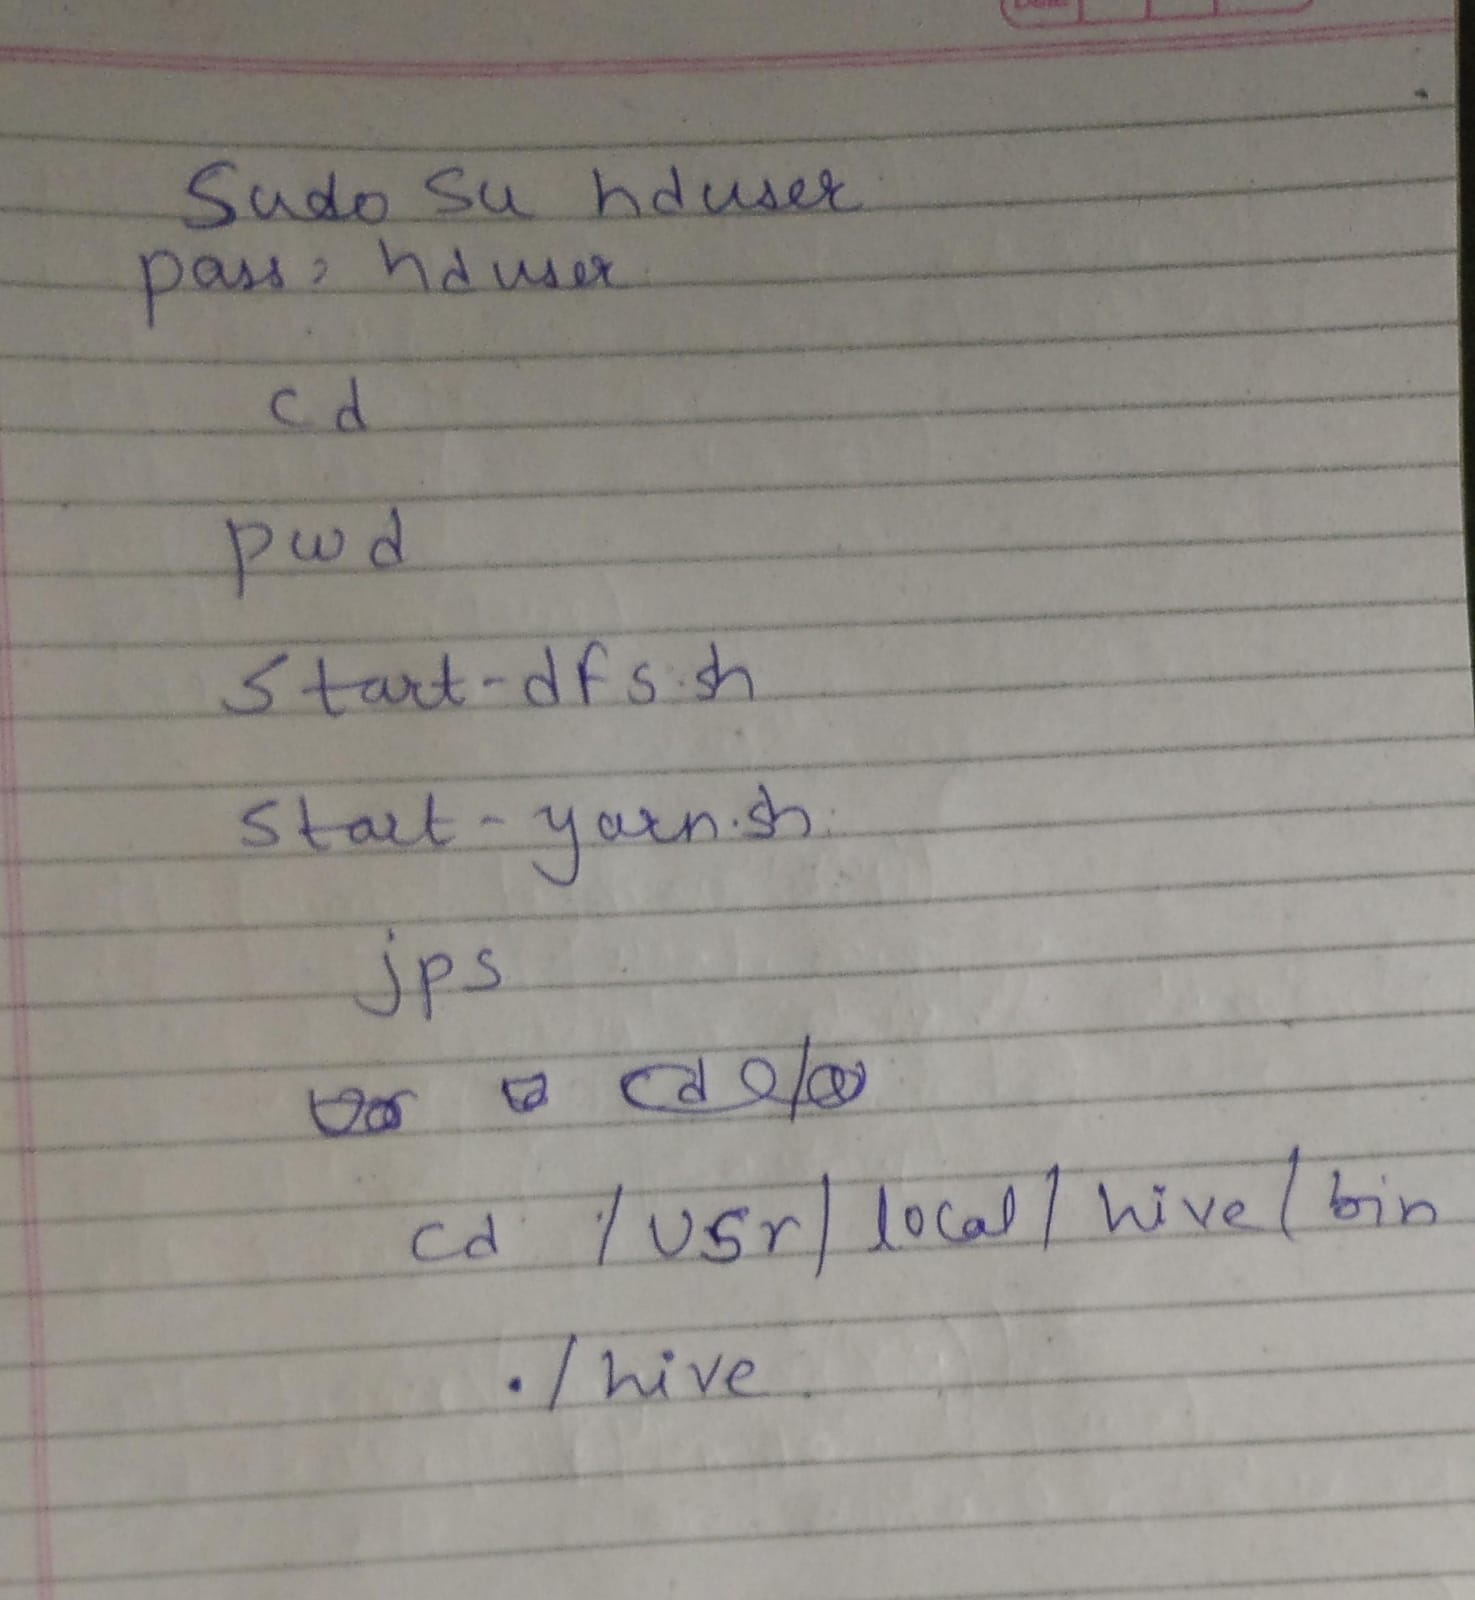 Sudo su hduser
pass: hduser
cd
pwd
start-dfs.sh
start-yarn.sh
jps
cd /usr/local/hive/bin
./hive